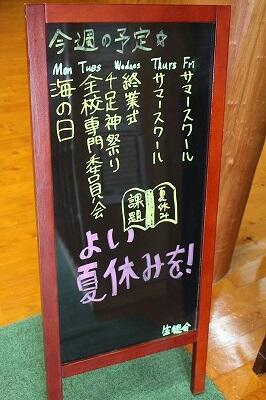 今週の予定☆
Mon Tues Wednes Thurs Fri
海の日
全校専門委員会
千足神祭り
終業式
サマースクール
サマースクール
夏休み
課題
よい
夏休みを!
生徒会